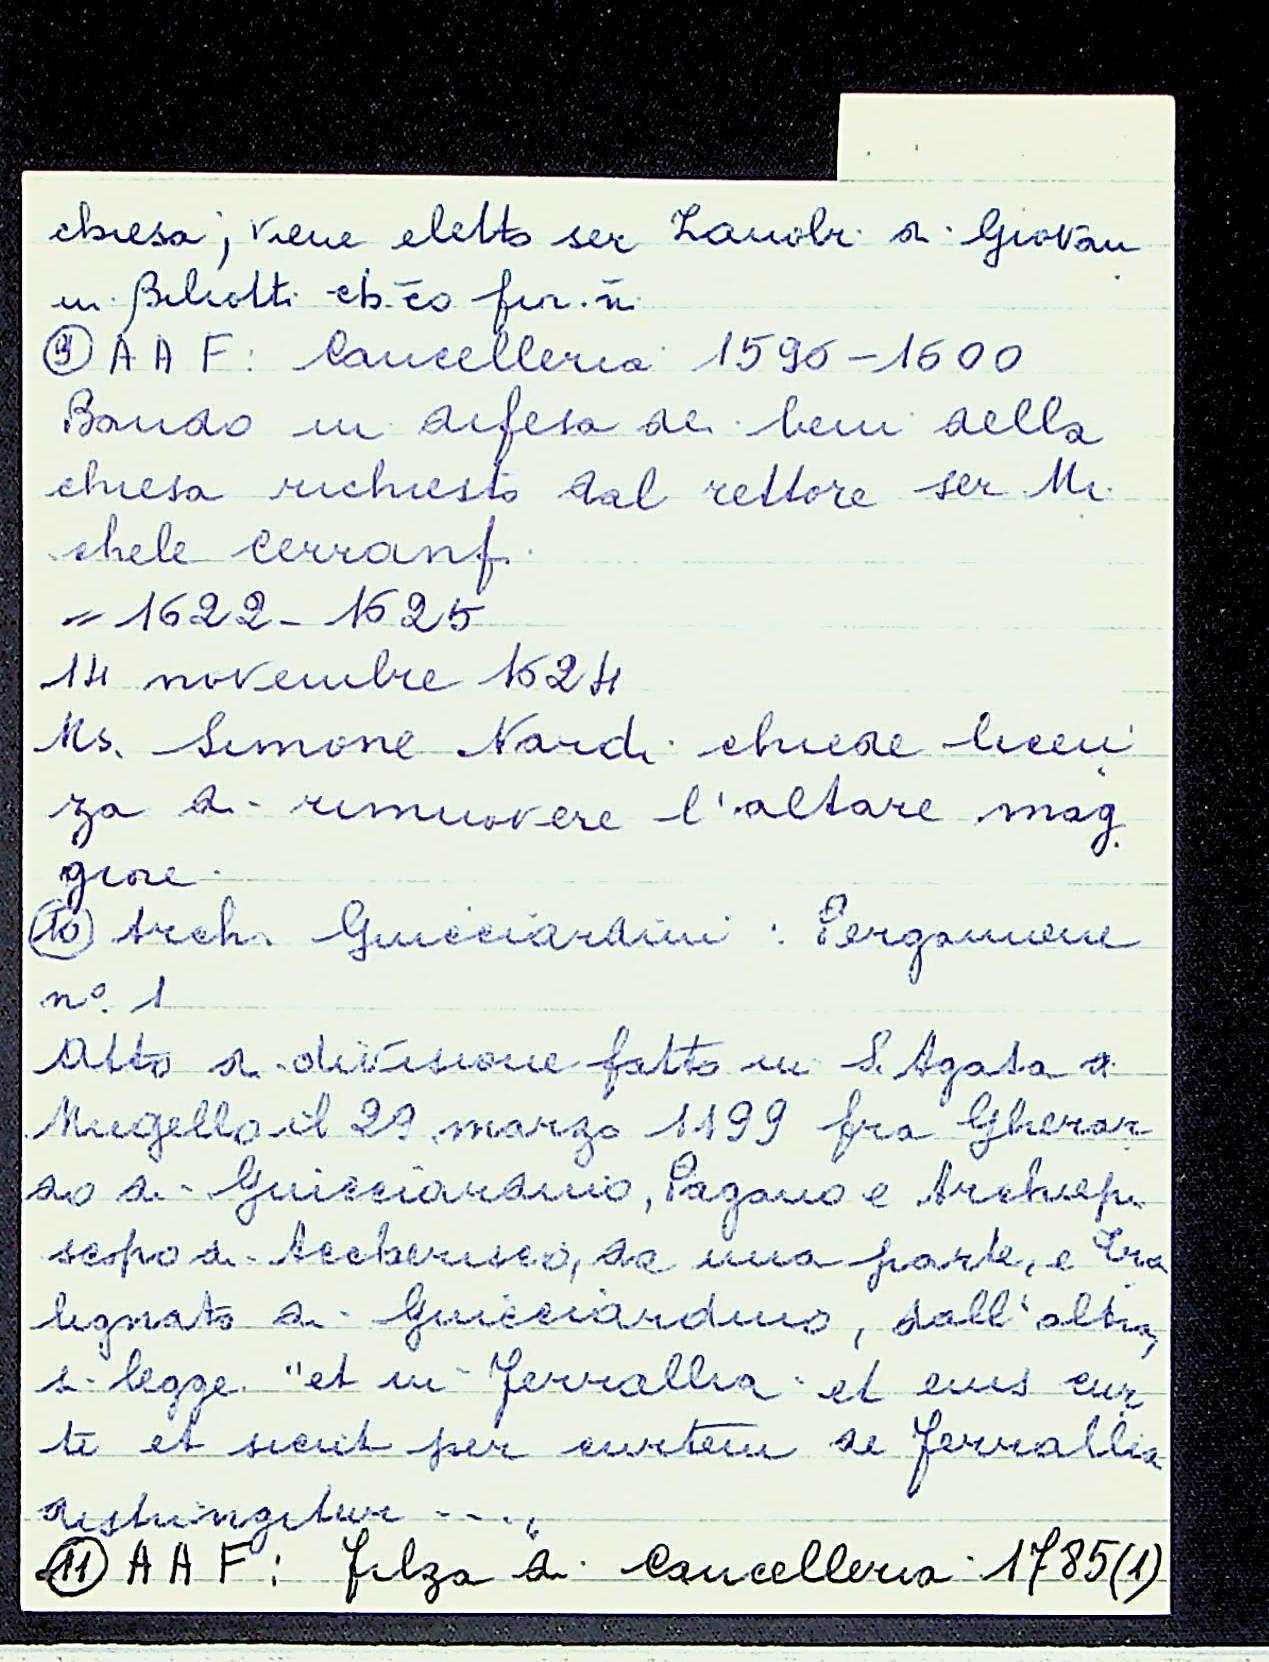 chiesa; viene eletto ser Zanobi di Giovan
ni Biliotti ch̄co fior.n̄
⑨ A A F: Cancelleria 1596-1600
Bando in difesa dei beni della
chiesa richiesto dal rettore ser Mi
chele Cerranf.
= 1622-1625
14 novembre 1624
Ms. Simone Nardi chiede licen
za di rimuovere l'altare mag
giore.
⑩ Arch. Guicciardini: Pergamene
n°. 1
Atto di divisione fatto in S. Agata a
Mugello il 29 marzo 1199 fra Gherar
do di Guicciardino, Pagano e Archiepi
scopo di Accherisco, da una parte, e Tra
lignato di Guicciardino, dall'altra,
si legge "et in Ferrallia et eius cur
te et sicut per curtem de Ferrallia
distringitur ....,
⑪ A A F: Filza di Cancelleria 1785(1)